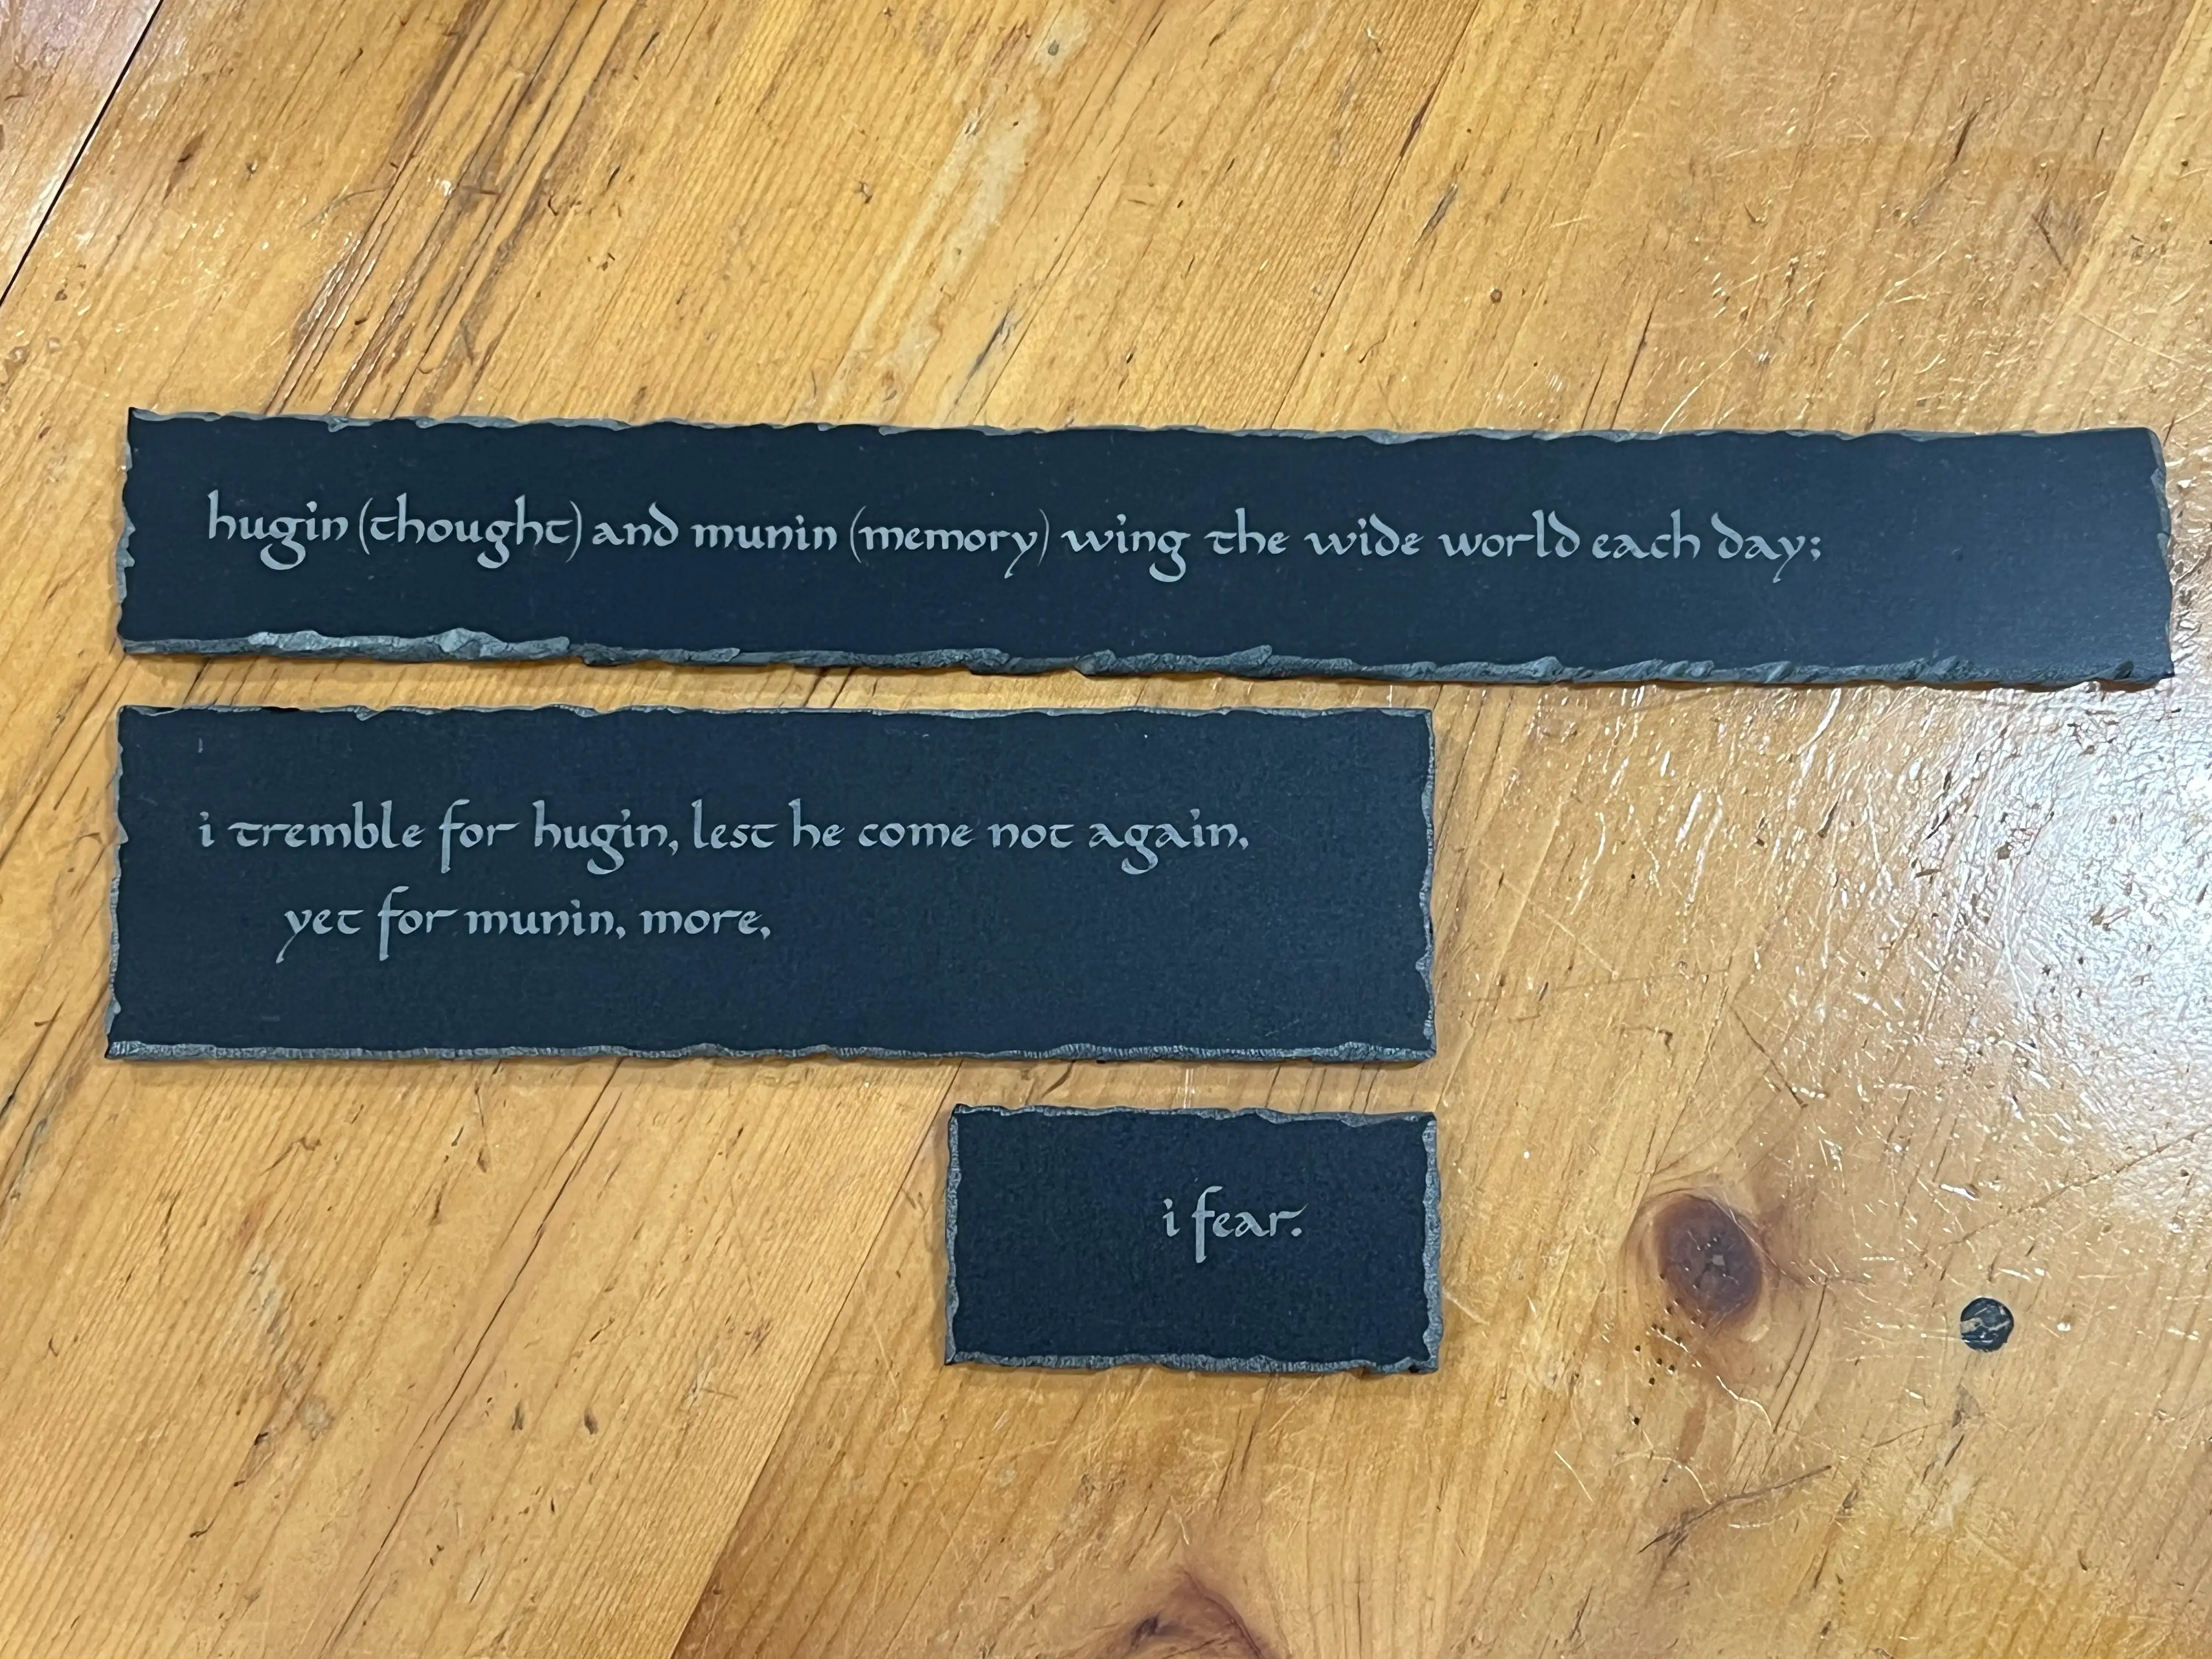 hugin (thought) and munin (memory) wing the wide world each day;
i tremble for hugin, lest he come not again,
yet for munin, more,
i fear.